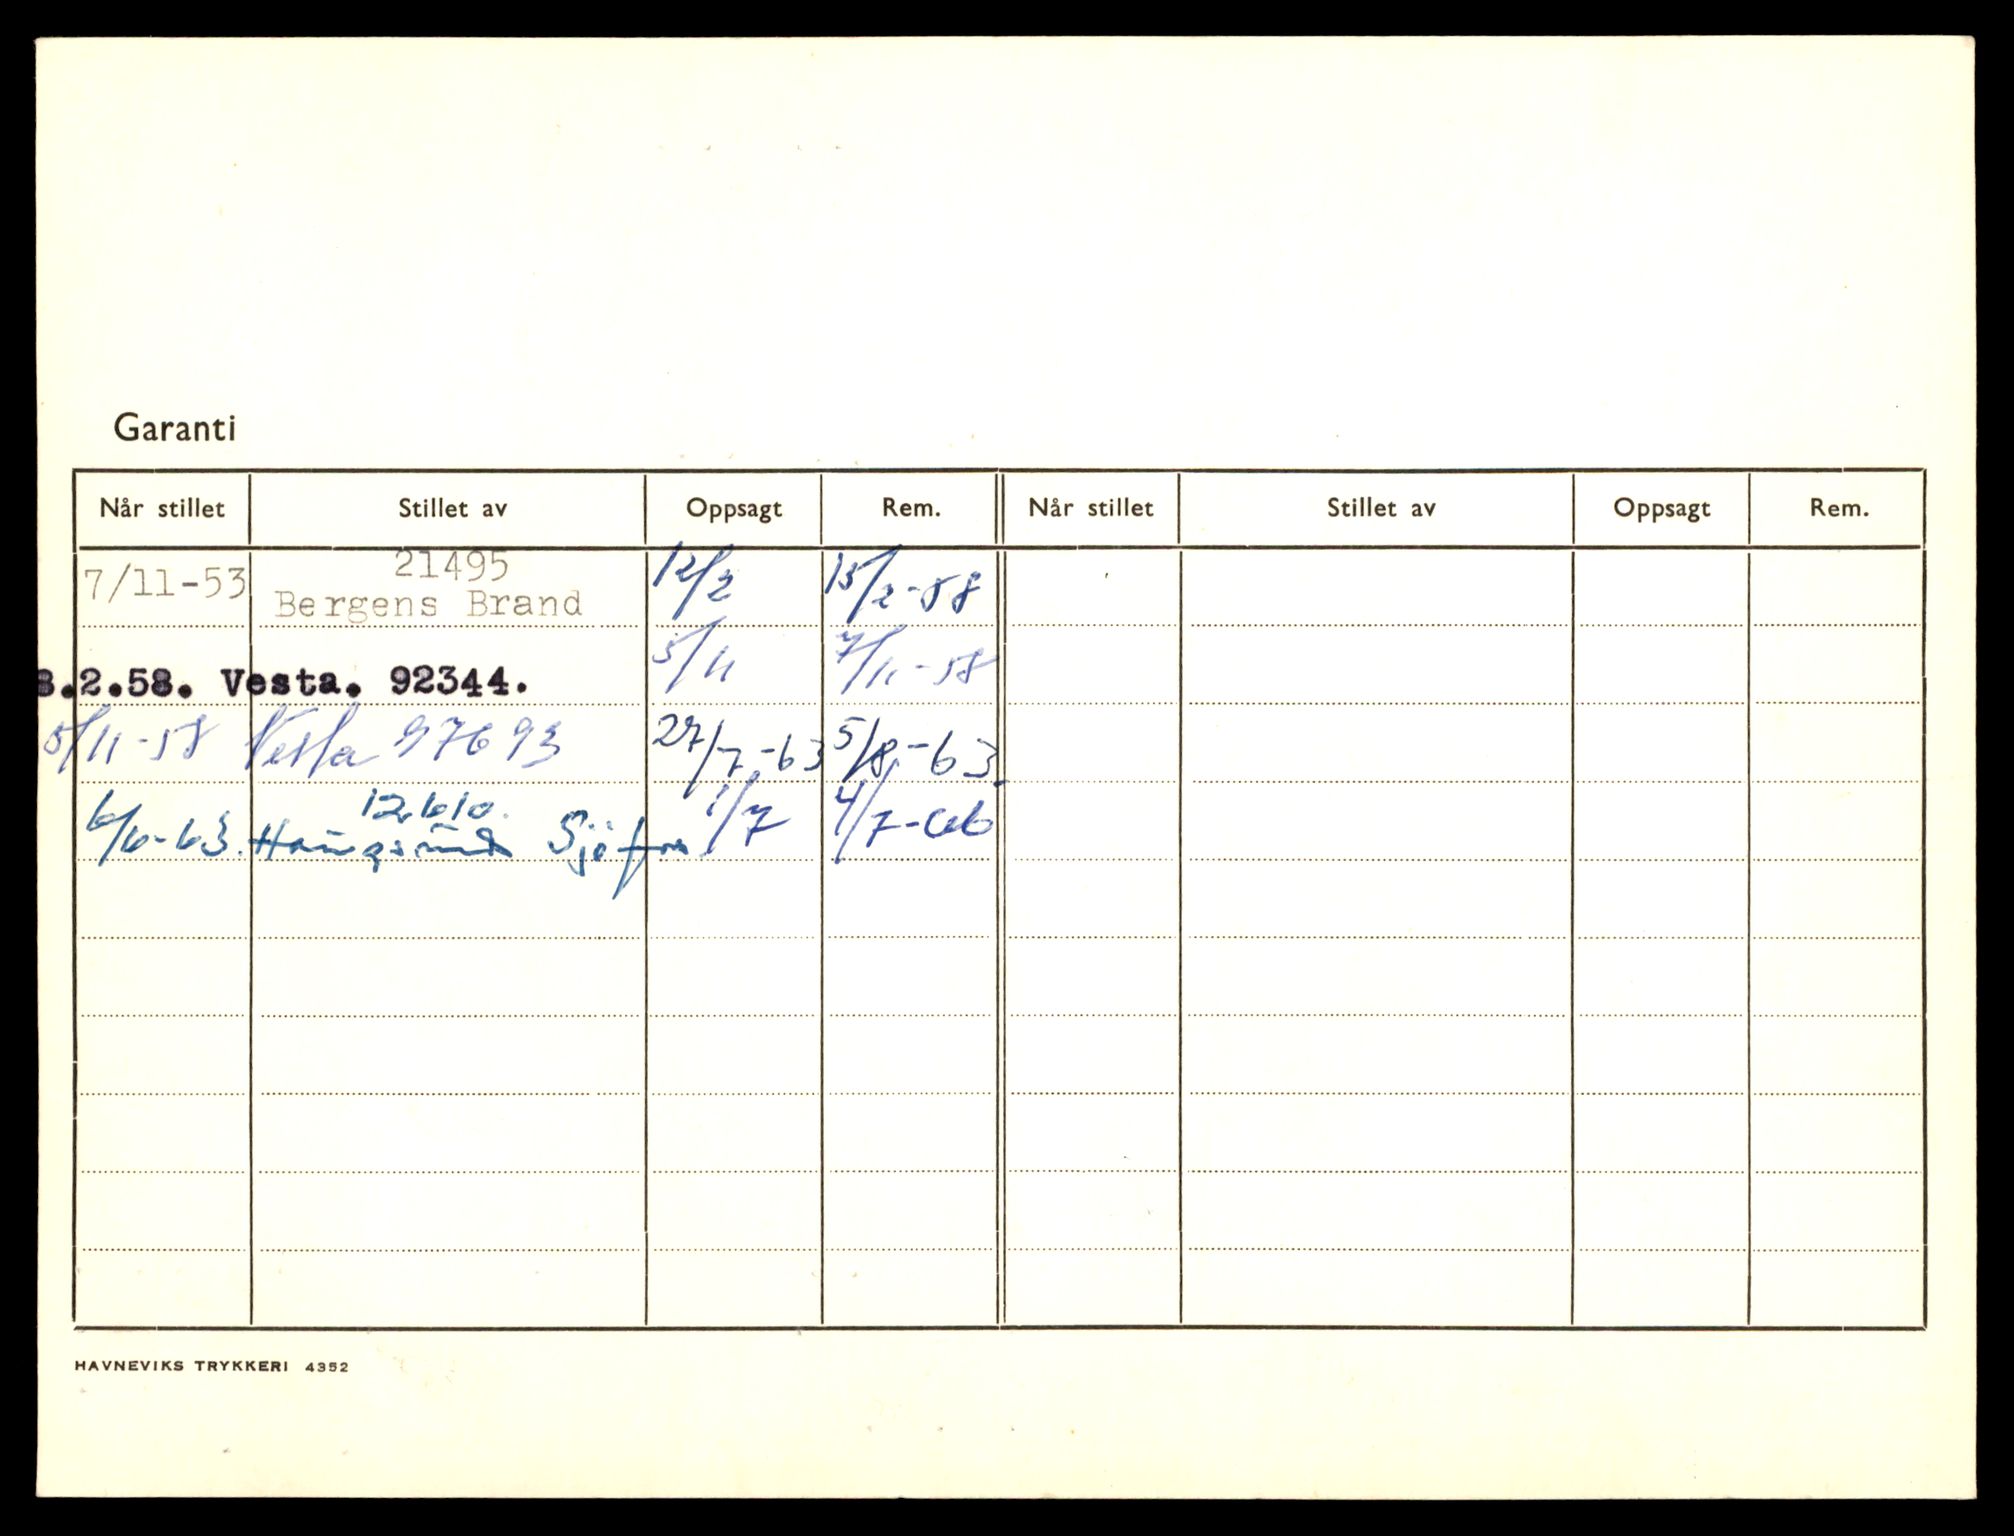 Garanti
Når stillet Stillet av Oppsagt Rem. Når stillet Stillet av Oppsagt Rem.
21495
7/11-53 Bergens Brand 12/2 15/2-58
8.2.58. Vesta. 92344. 5/11 7/11-58
5/11-58 Vesta 97693 27/7-63 5/8-63.
12610.
6/6-63. Haugesund Sjöfors. 1/7 4/7-66
HAVNEVIKS TRYKKERI 4352